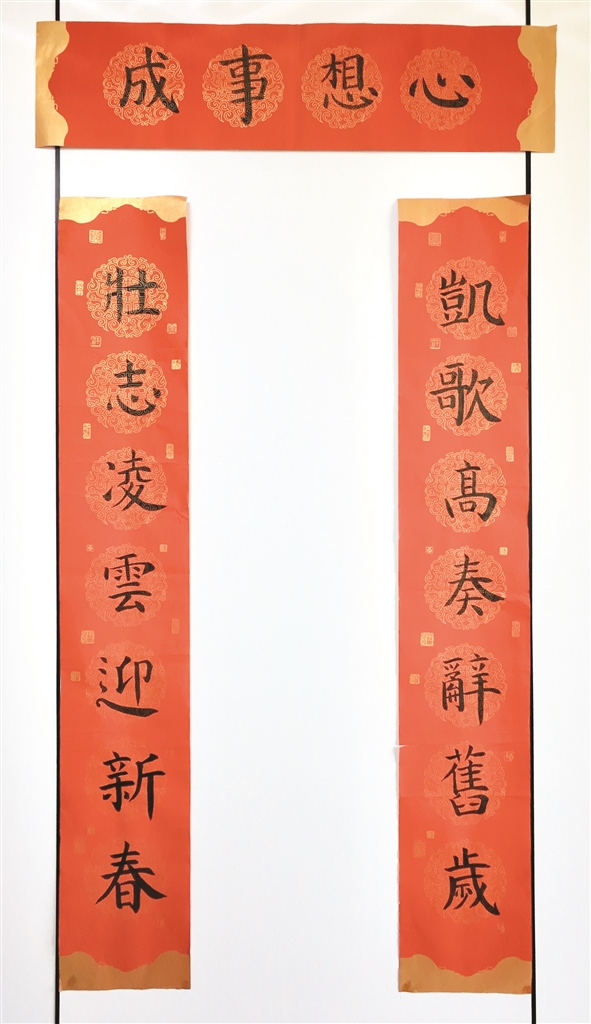 心想事成
凱歌高奏辭舊歲
壯志凌雲迎新春